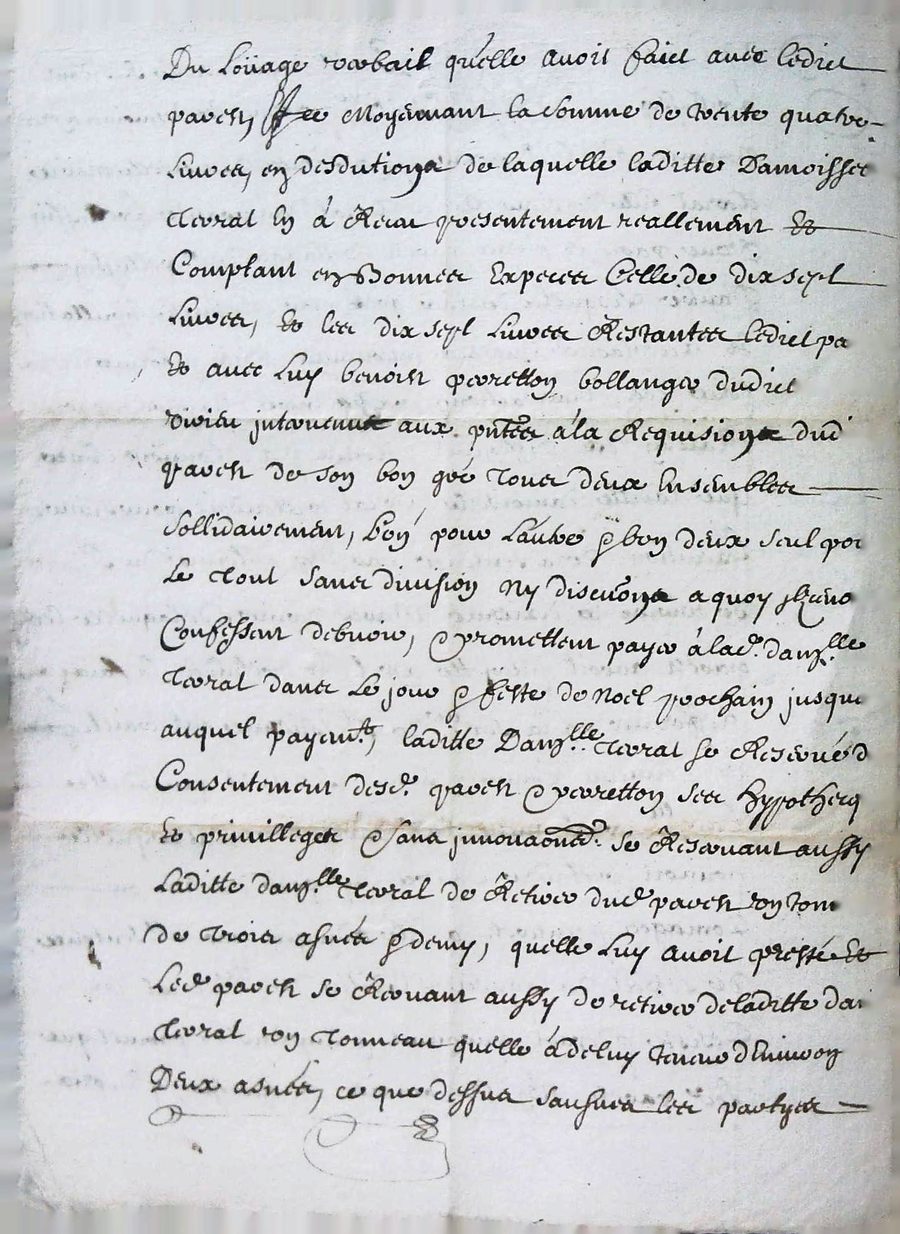 Du Loüage verbail quelle avoit faict avec ledict
paven, Moyennant la Somme de trente quatre
Livres, en desdutions de laquelle laditte Damoisse
Terral en á Receu presentement reallement Et
Comptant en Bonnes Especes Celle de dix sept
Livres, Et les dix sept Livres Restantes ledict pa
Et avec Luy benoist perretton bollanger dudict
intervenue aux pntes á la Requisions dud
paven de son bon gré tous deux Ensembles
Sollidairement, L'un pour L'autre & l'un deux seul pour
Le tout sans division Ny discutions a quoy
Confessent debvoir, & promettent payer á lad. damlle
Terral dans Le jour & feste de Noel prochain jusque
auquel payemt, laditte Damlle Terral se Reservé d
Consentement desd. paven & perretton ses hypothecq
Et privilleges & sans innovaond. Se Reservant aussy
Laditte damlle Terral de Retirer dud paven un tonn
De trois asnés & demy, quelle Luy avoit presté Et
Led paven se Rervant aussy de retirer de laditte da
Terral un Tonneau quelle á de luy tenue d'Environ
Deux asnés, ce que dessus les partyes